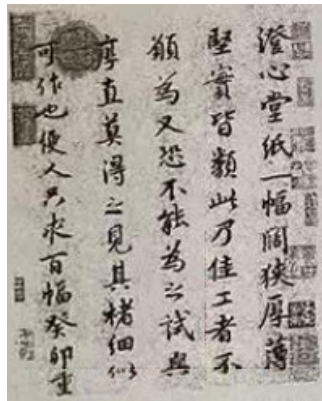 澄心堂紙一幅闊狹厚薄
堅實皆類此乃佳工者不
願為又恐不能為之試與
厚直莫得之見其楮細似
可作也便人只求百幅癸卯重